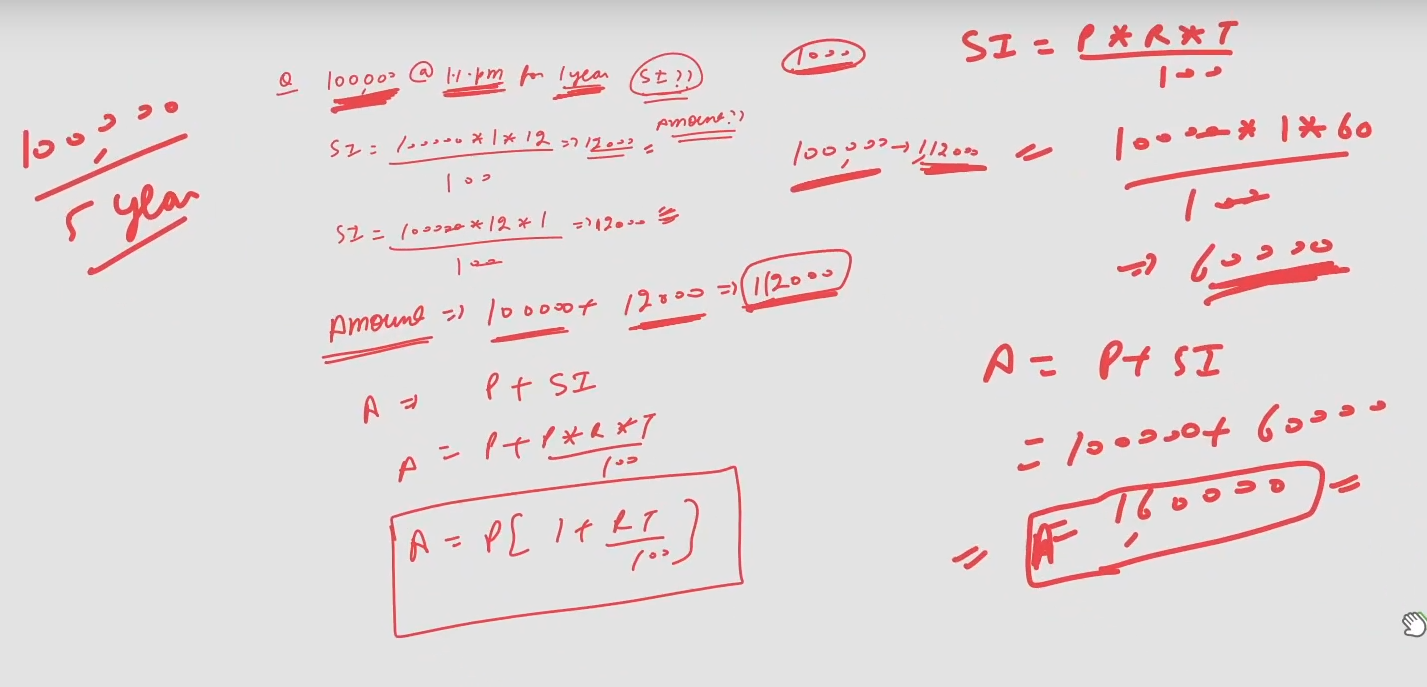 100,000
5 year
Q 100000 @ 1%.pm for 1 year SI??
SI = 100000 * 1 * 12 => 12000 = Amount??
100
SI = 100000 * 12 * 1 => 12000
100
Amount => 100000 + 12000 => 112000
A => P + SI
A = P + P * R * T
100
A = P[ 1 + RT ]
100
1000
SI = P * R * T
100
100,000 → 1,12000 = 100000 * 1 * 60
100
=> 60000
A = P + SI
= 100000 + 60000
= A = 1,60000 =